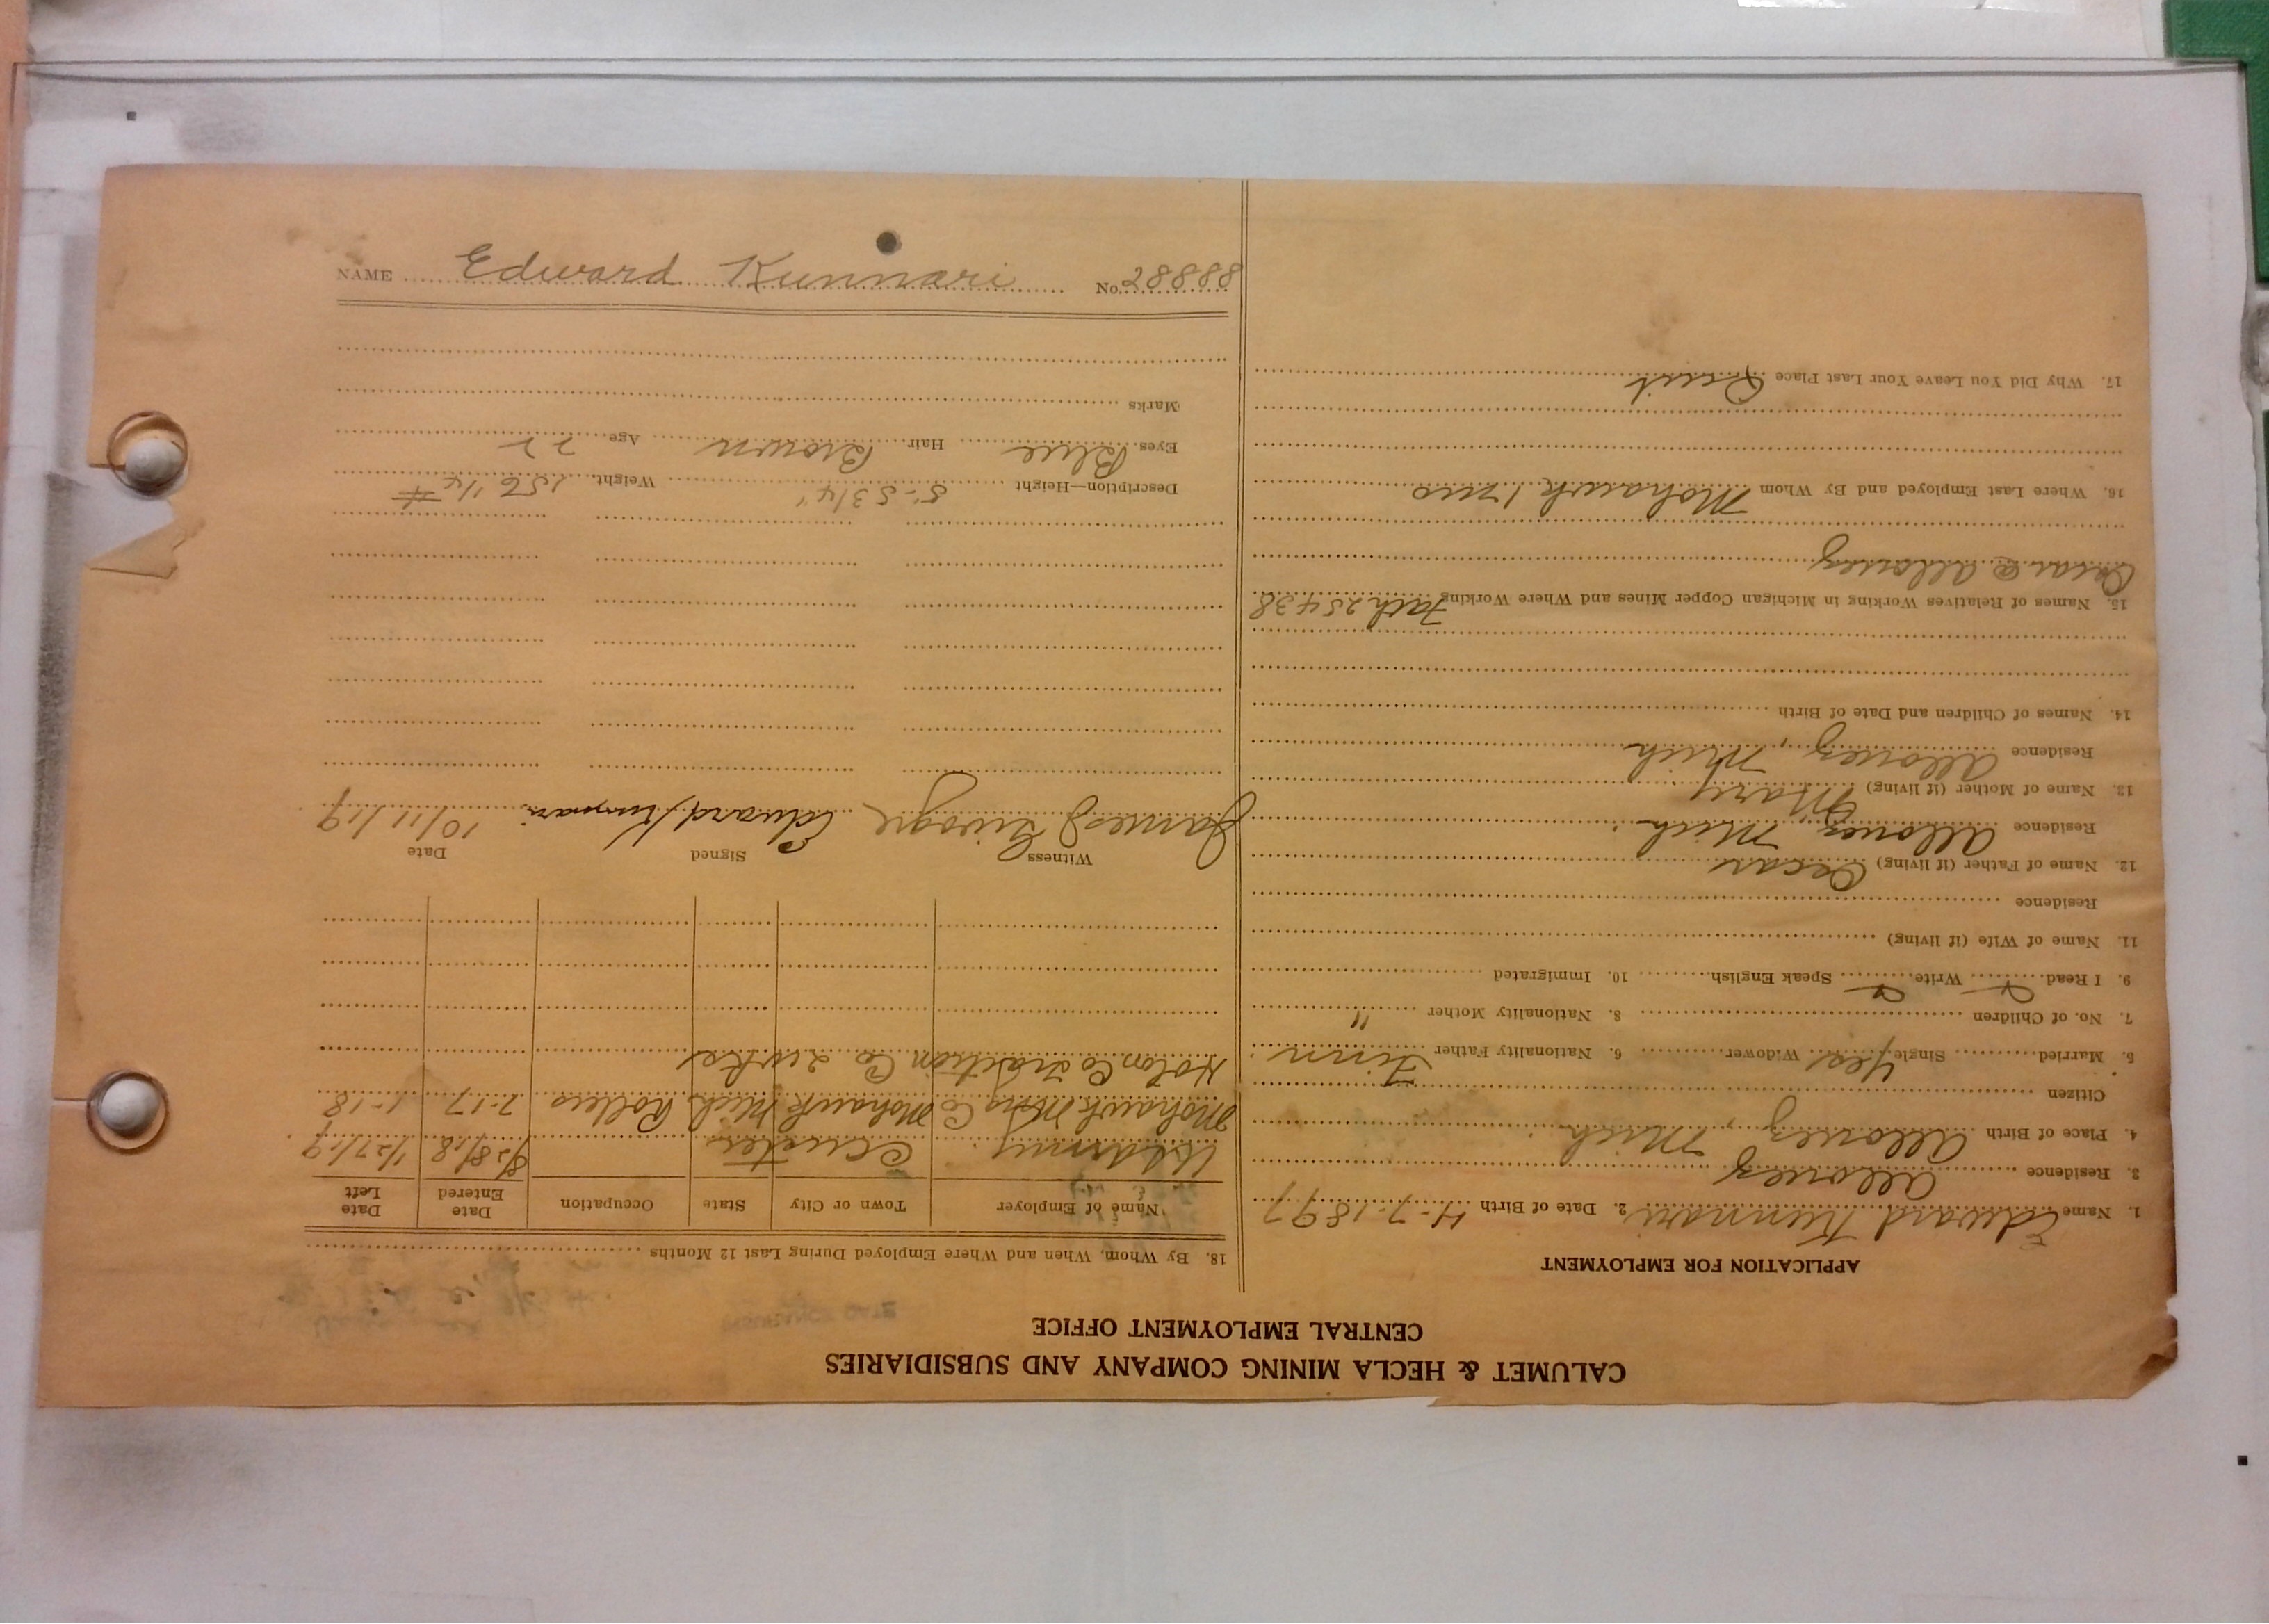 CALUMET & HECLA MINING COMPANY AND SUBSIDIARIES
CENTRAL EMPLOYMENT OFFICE
APPLICATION FOR EMPLOYMENT
1. Name Edward Kunnari 2. Date of Birth 4-7-1897
3. Residence Allouez
4. Place of Birth Allouez, Mich.
Citizen
5. Married Single Yes Widower 6. Nationality Father Finn
7. No. of Children 8. Nationality Mother "
9. I Read Write Speak English 10. Immigrated
11. Name of Wife (if living)
Residence
12. Name of Father (if living) Oscar
Residence Allouez, Mich.
13. Name of Mother (if living) Mary
Residence Allouez, Mich
14. Names of Children and Date of Birth
15. Names of Relatives Working in Michigan Copper Mines and Where Working Fath 25438
Oscar @ Allouez
16. Where Last Employed and By Whom Mohawk
17. Why Did You Leave Your Last Place Quit
18. By Whom, When and Where Employed During Last 12 Months
Name of Employer Town or City State Occupation Date Entered Date Left
US Army Custer 8/28/18 1/27/19
Mohawk Mng Co Mohawk Mich Rollers 7-17 1-18
Hoton Co Traction Co 2 wks
Witness Signed Date
James Edward Kunnari 10/11/19
Description—Height 5'-5 3/4" Weight 156 1/4 #
Eyes Blue Hair Brown Age 22
Marks
NAME Edward Kunnari No. 28888